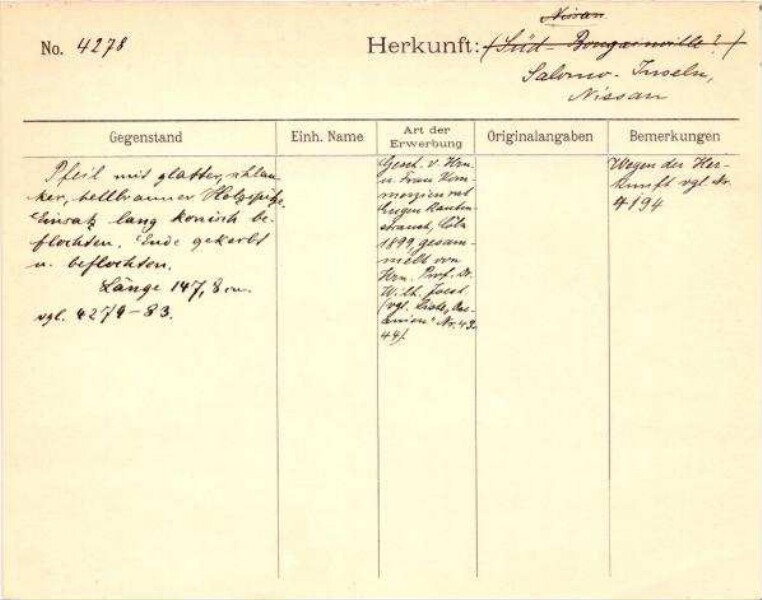 Nissan
No. 4278
Herkunft: (Süd-Bougainville?)
Salomo-Inseln,
Nissan
Gegenstand
Einh. Name
Art der
Erwerbung
Originalangaben
Bemerkungen
Pfeil mit glatter, schlan
ker, hellbrauner Holzspitze.
Einsatz lang konisch be-
flochten. Ende gekerbt
u. beflochten.
Länge 147,8 cm.
vgl. 4279-83.
Gesch. v. Hrn.
u. Frau Kom-
merzienrat
Eugen Rauten
strauch, Cöln
1899, gesam-
melt von
Hrn. Prof. Dr.
Wilh. Joest
(vgl. Liste, Oce-
anien" Nr. 43.
44).
Wegen der Her-
kunft vgl. Nr.
4194